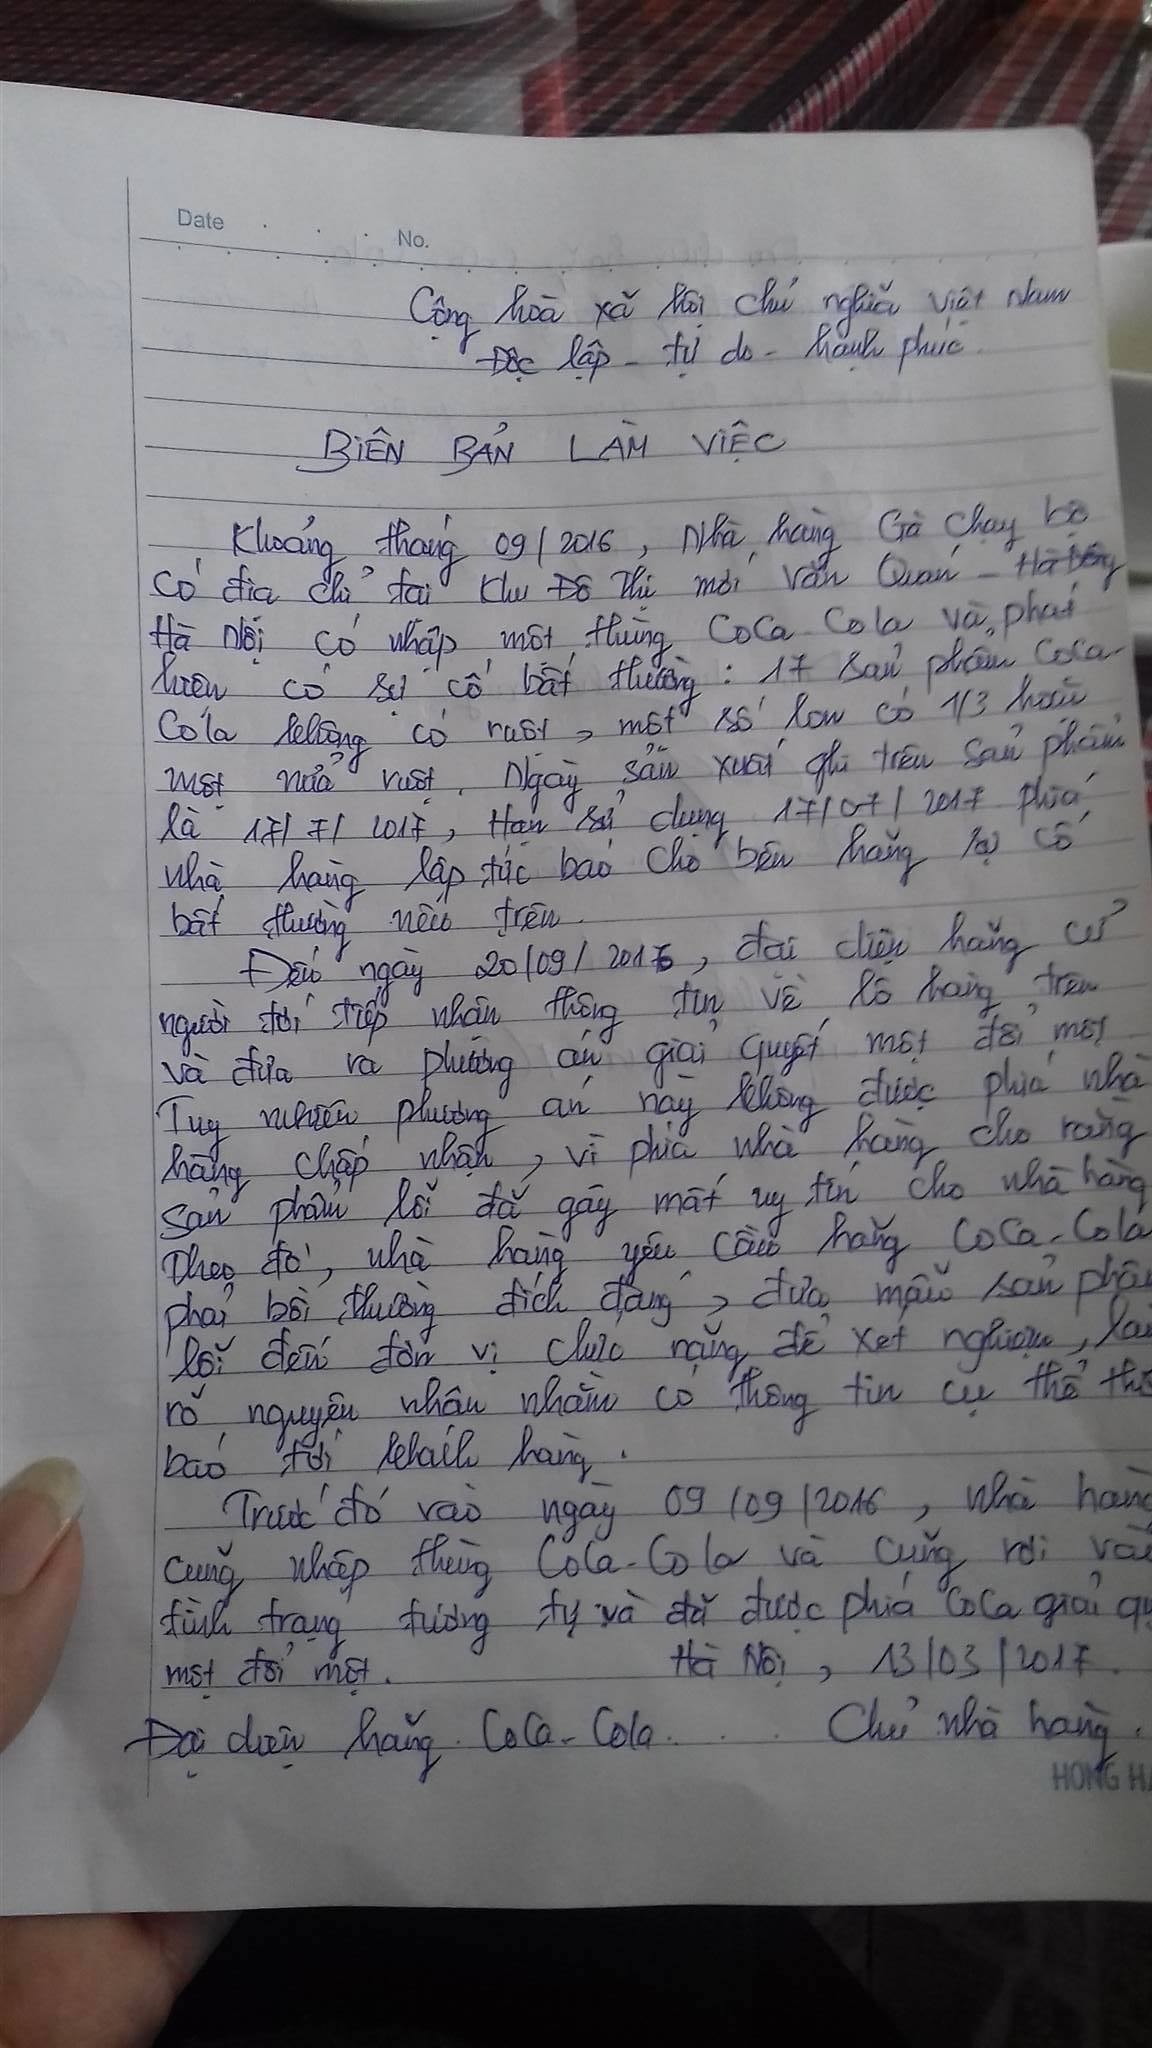 Date . . . No.
Cộng hoà xã hội chủ nghĩa Việt Nam
Độc lập - tự do - hạnh phúc.
BIÊN BẢN LÀM VIỆC
Khoảng tháng 09/2016, Nhà hàng Gà chạy bộ
có địa chỉ tại Khu Đô Thị mới Văn Quán - Hà Đông
Hà Nội có nhập một thùng CoCa-Cola và phát
hiện có sự cố bất thường: 17 sản phẩm Coca-
Cola không có ruột, một số lon có 1/3 hoặc
một nửa ruột. Ngày sản xuất ghi trên sản phẩm
là 17/7/2017, Hạn sử dụng 17/07/2017 phía
nhà hàng lập tức báo cho bên hãng sự cố
bất thường nêu trên.
Đến ngày 20/09/2016, đại diện hãng cử
người tới tiếp nhận thông tin về lô hàng trên
và đưa ra phương án giải quyết một đổi một
Tuy nhiên phương án này không được phía nhà
hàng chấp nhận, vì phía nhà hàng cho rằng
sản phẩm lỗi đã gây mất uy tín cho nhà hàng
Theo đó, nhà hàng yêu cầu hãng CoCa-Cola
phải bồi thường đích đáng, đưa mẫu sản phẩm
lỗi đến đơn vị chức năng để xét nghiệm, làm
rõ nguyên nhân nhằm có thông tin cụ thể thô
báo tới khách hàng.
Trước đó vào ngày 09/09/2016, nhà hàng
cũng nhập thùng CoCa-Cola và cũng rơi vào
tình trạng tương tự và đã được phía CoCa giải qu
một đổi một. Hà Nội, 13/03/2017.
Đại diện hãng CoCa-Cola. Chủ nhà hàng.
HONG HA